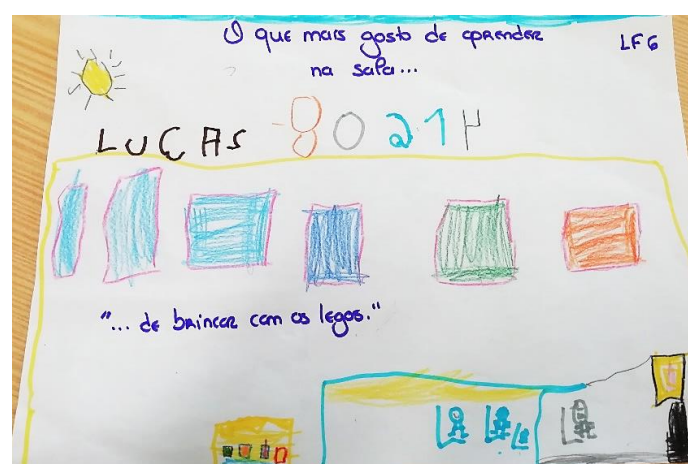 O que mais gosto de aprender
na sala...
LF6
LUCAS 8 0 2 1 4
"... de brincar com os legos."